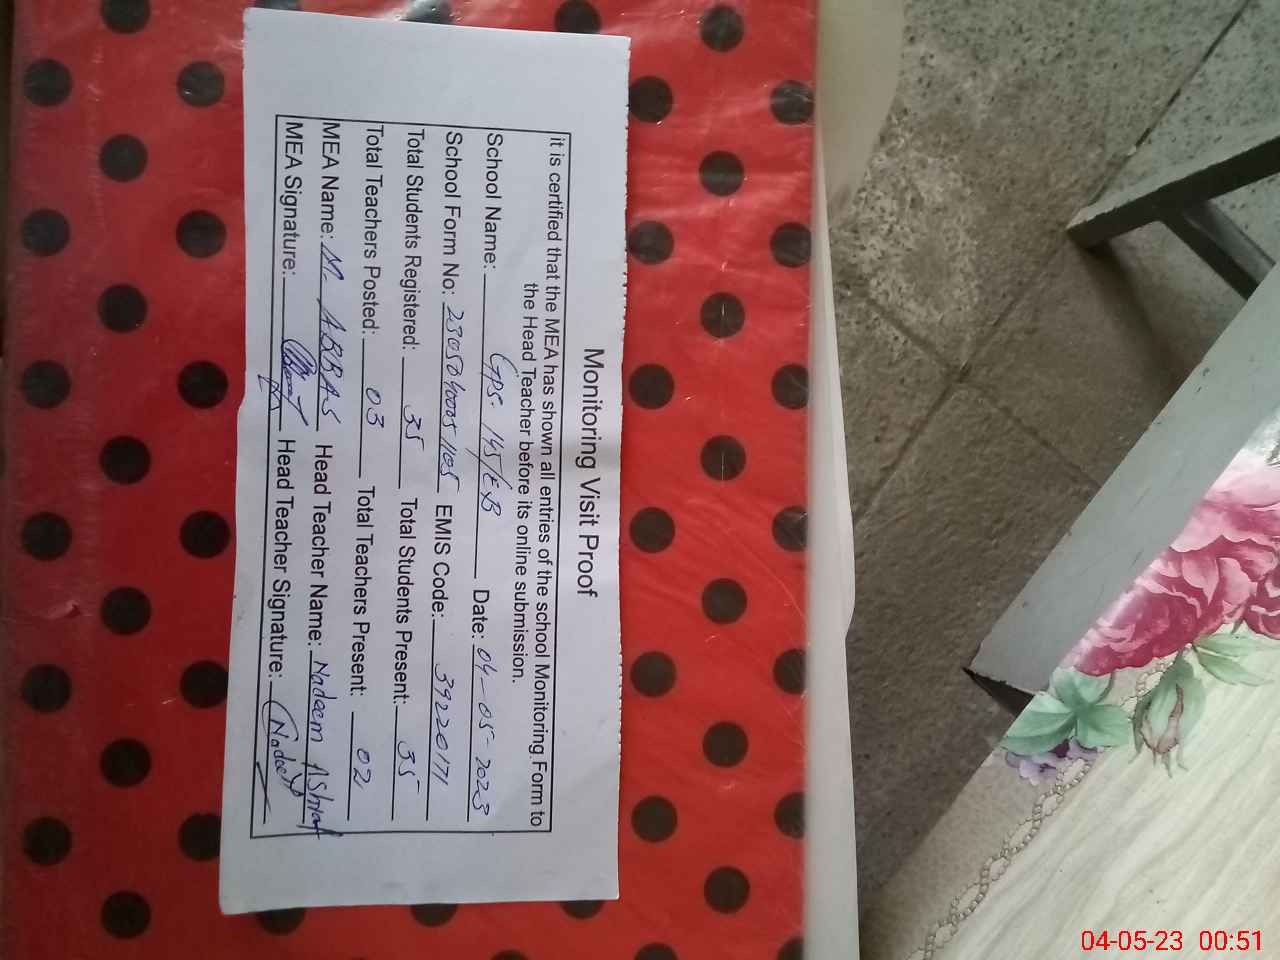 Monitoring Visit Proof
it is certified that the MEA has shown all entries of the school Monitoring Form to
the Head Teacher before its online submission.
School Name: GPS. 145/EB Date: 04-05-2023
School Form No: 23050400051105 EMIS Code: 39220171
Total Students Registered: 35 Total Students Present: 35
Total Teachers Posted: 03 Total Teachers Present: 02
MEA Name: M. ABBAS Head Teacher Name: Nadeem Ashraf
MEA Signature: Head Teacher Signature: Nadeem
04-05-23 00:51